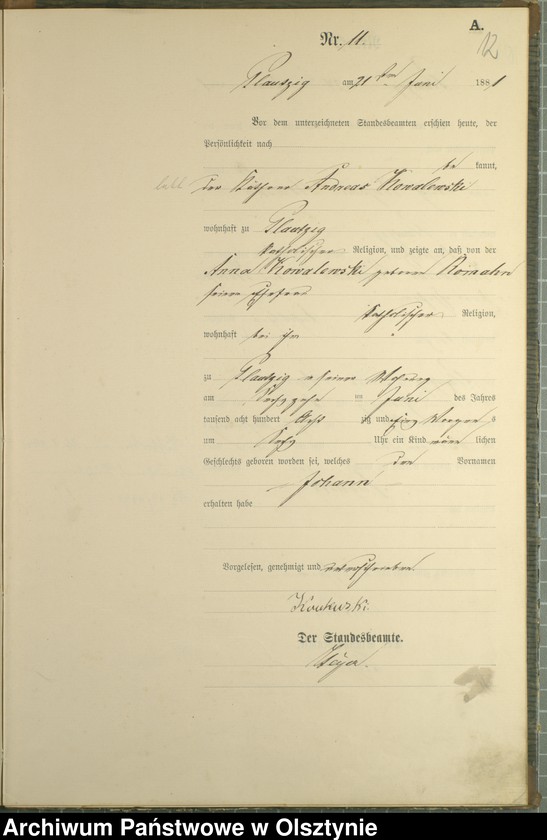 A.
Nr. 11.
12
am 21 ten Juni 1881
Vor dem unterzeichneten Standesbeamten erschien heute, der
Persönlichkeit nach
be kannt,
der Andreas Kowalewski
wohnhaft zu
katholischer Religion, und zeigte an, daß von der
Anna Kowalewski geborne Romahn
seiner Ehefrau
katholischer Religion,
wohnhaft bei ihm
zu in seiner Wohnung
am im Juni des Jahres
tausend acht hundert acht zig und eins Morgen s
um sechs Uhr ein Kind männ lichen
Geschlechts geboren worden sei, welches den Vornamen
Johann
erhalten habe
Vorgelesen, genehmigt und unterschrieben
Der Standesbeamte.
Archiwum Państwowe w Olsztynie